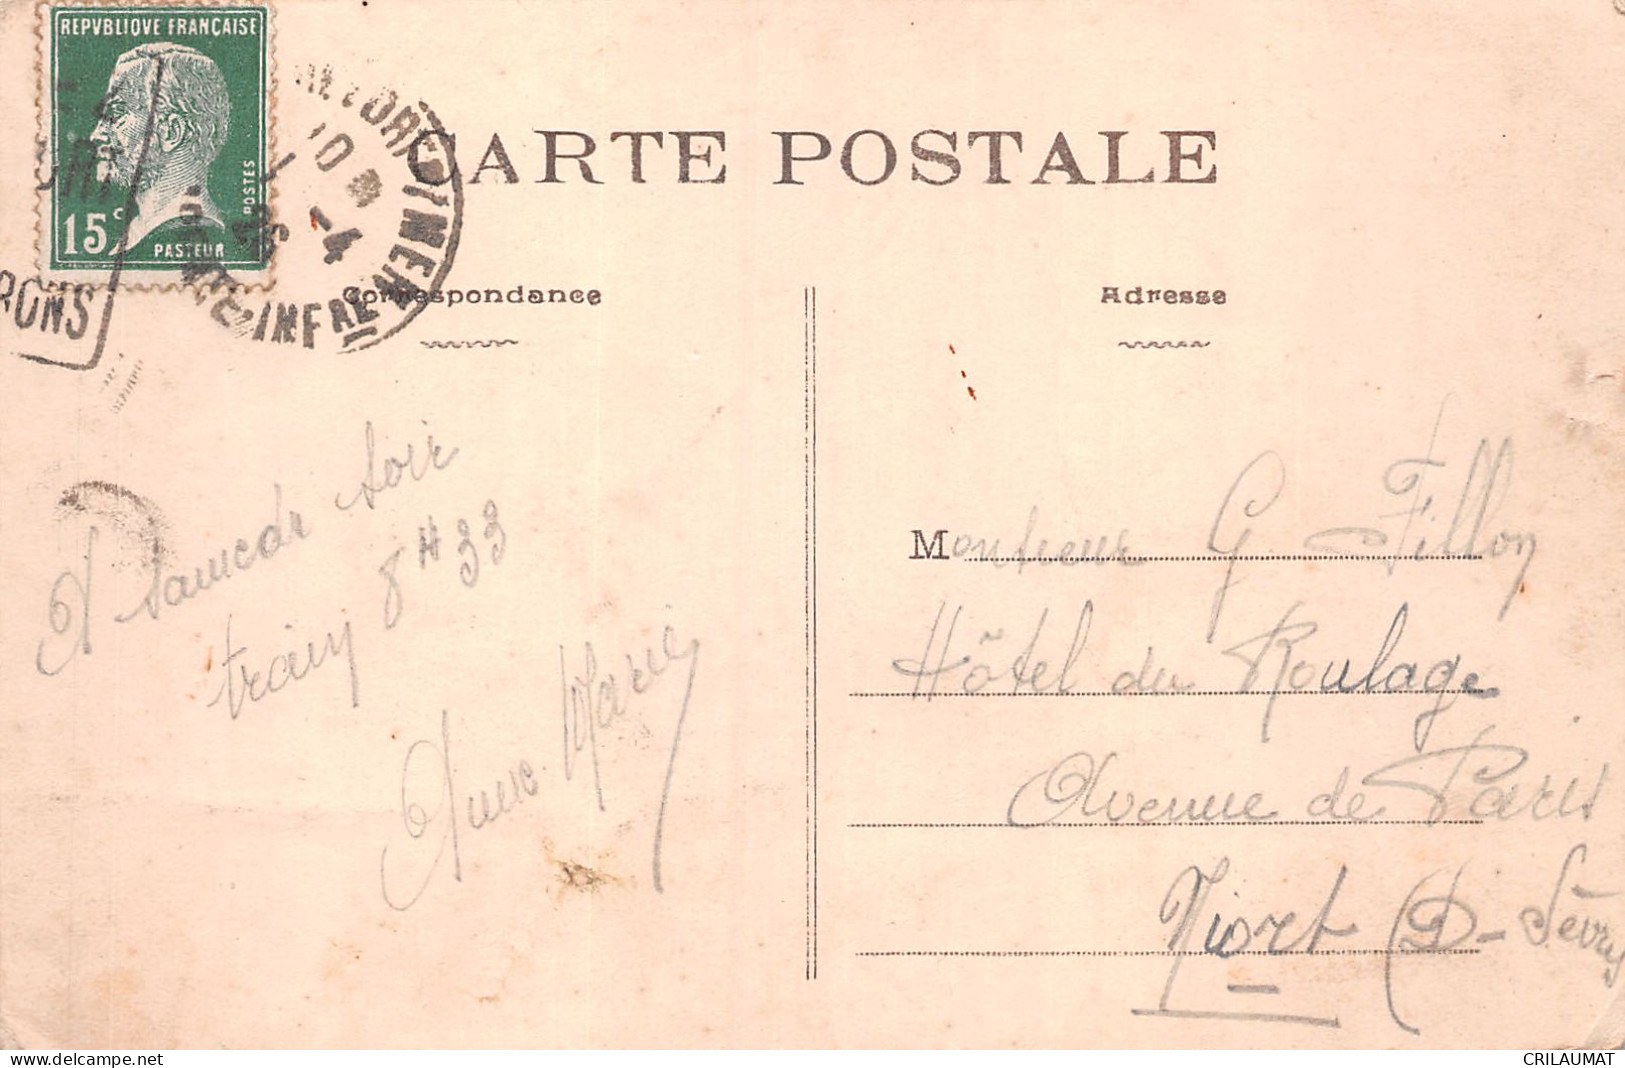 REPVBLIQVE FRANÇAISE
POSTES
15c
PASTEUR
RONS
CHTE-INFRE
10
1-4
26
CARTE POSTALE
Correspondance
Adresse
A samedi soir
train 8H33
Anne Marie
Monsieur G. Fillon
Hôtel du Roulage
Avenue de Paris
Niort (D-Sèvres
CRILAUMAT